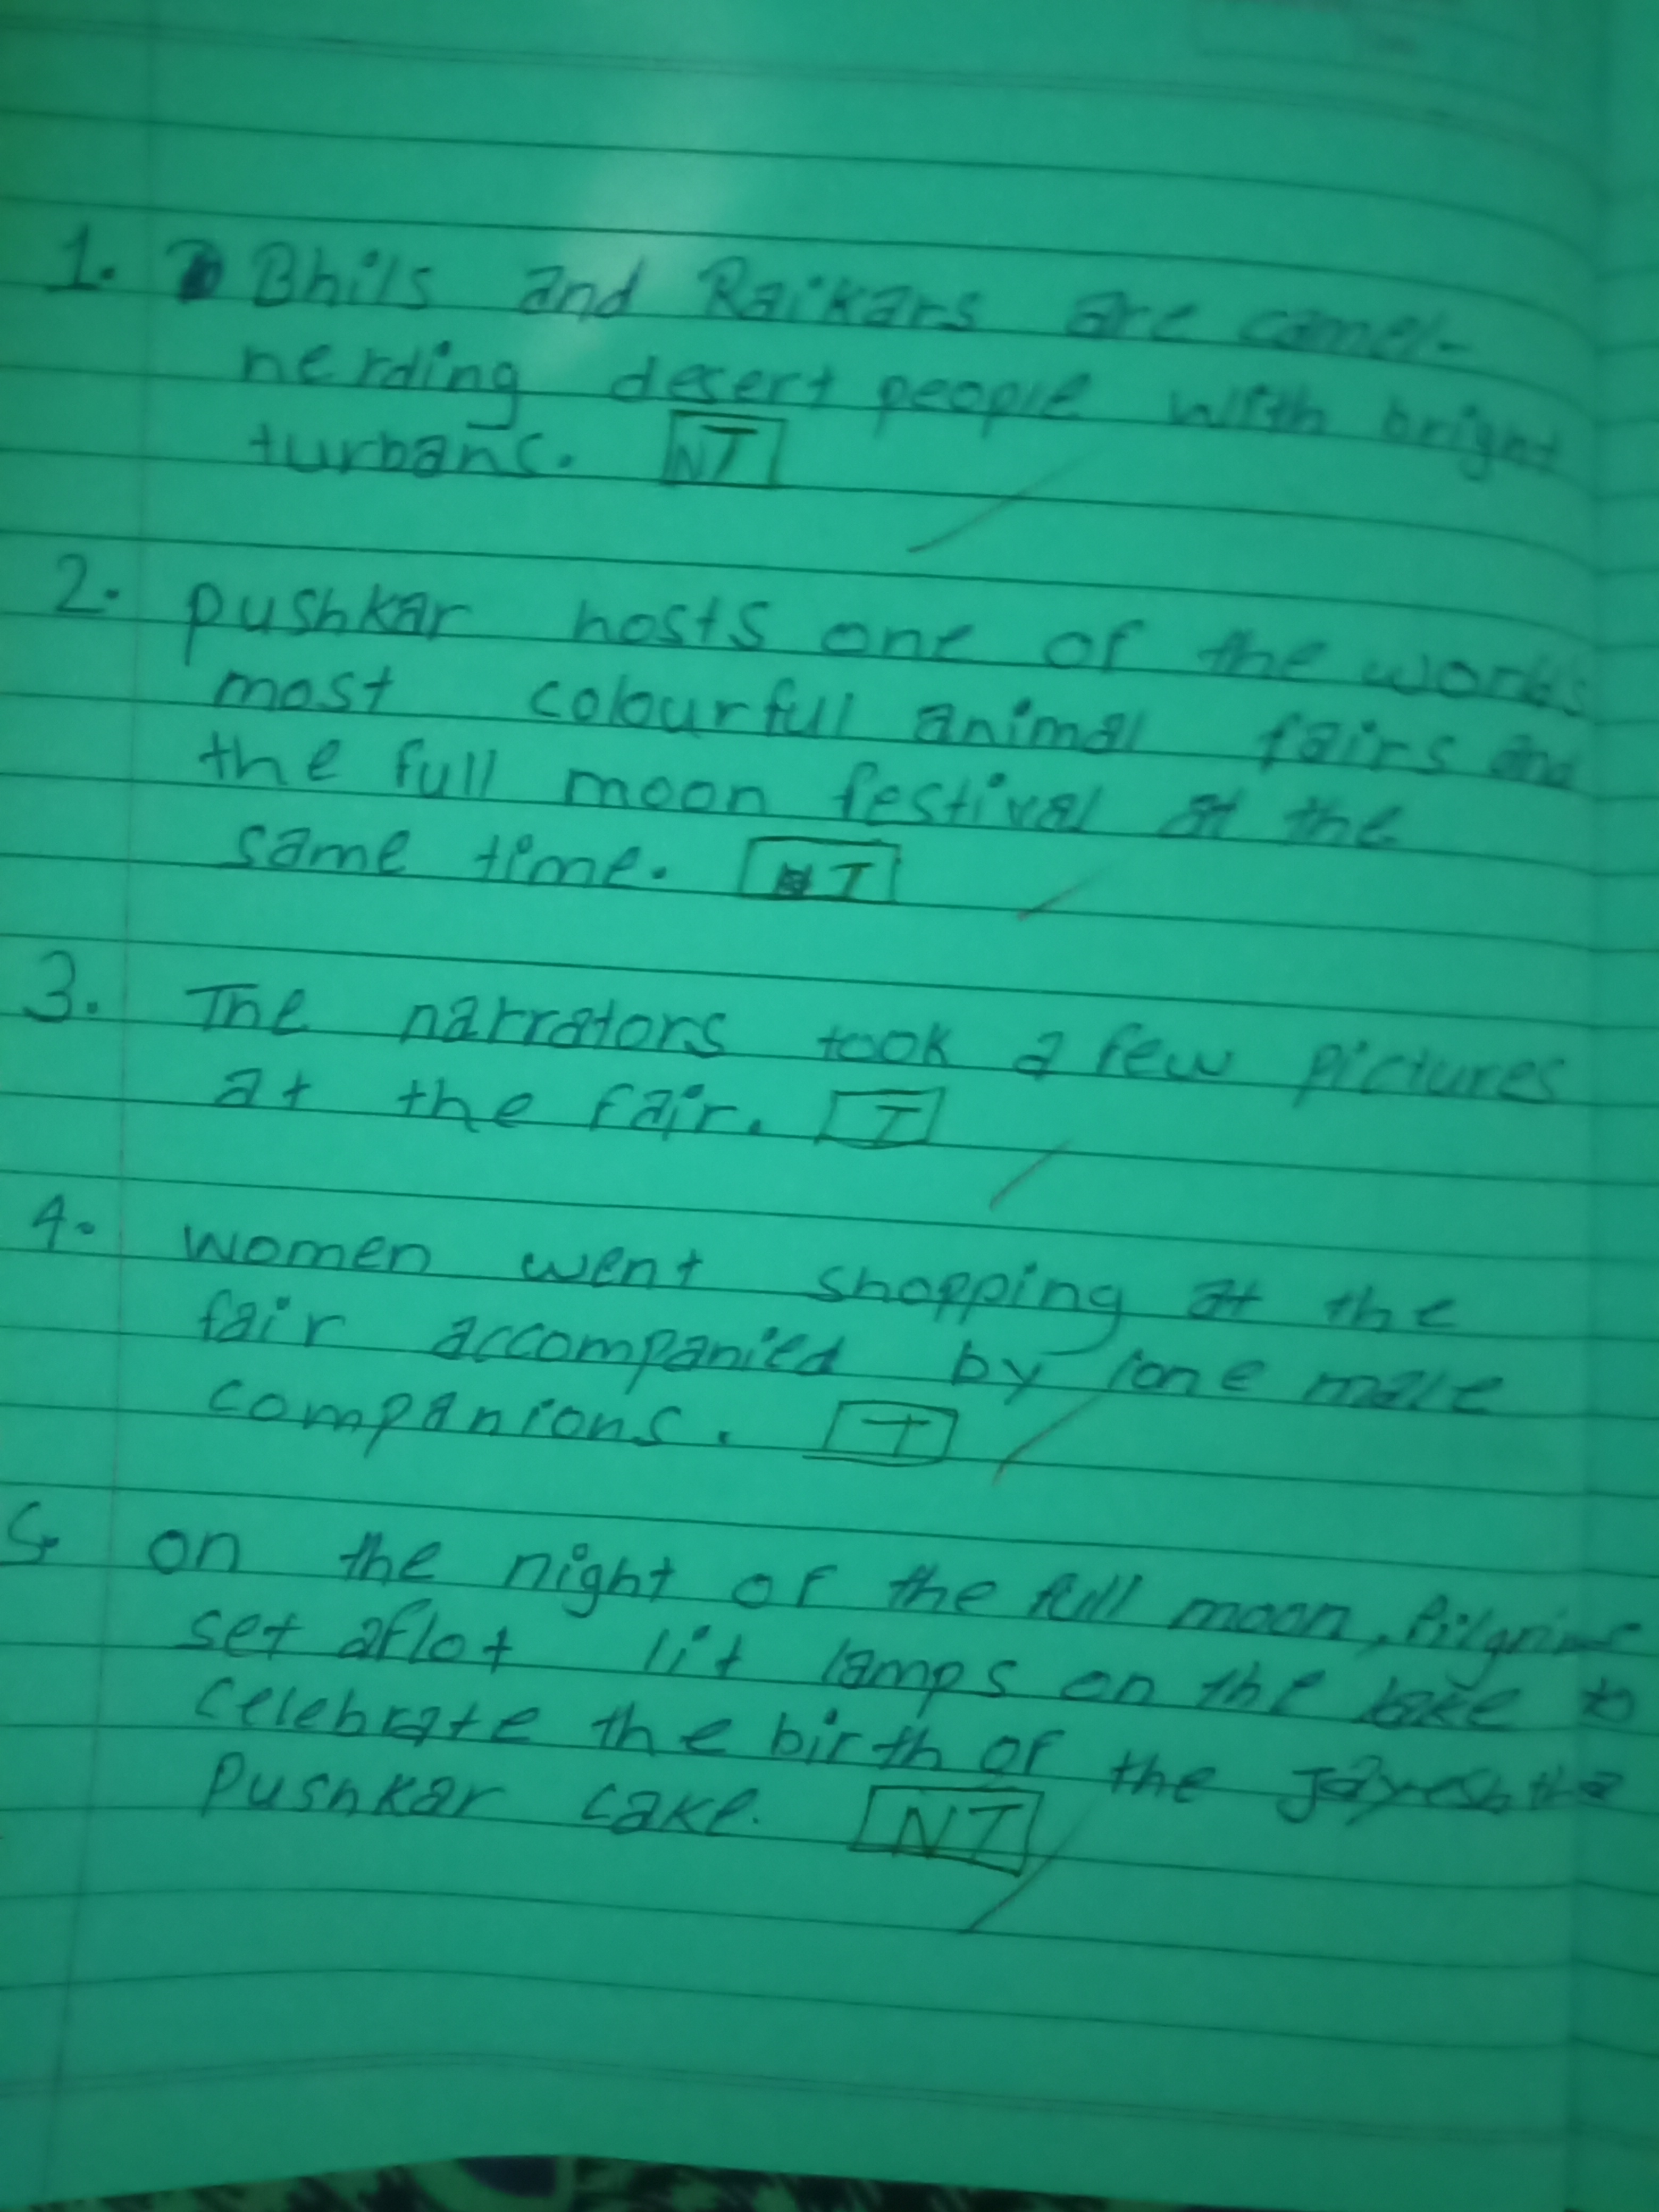 1. Bhils and Raikars are camel-
herding desert people with bright
turbans. NT
2. pushkar hosts one of the worlds
most colourful animal fairs and
the full moon festival at the
same time. T
3. The narrators took a few pictures
at the fair. T
4. women went shopping at the
fair accompanied by lone male
companions. T
5. on the night of the full moon, pilgrims
set aflot lit lamps on the lake to
celebrate the birth of the
Pushkar cake. NT